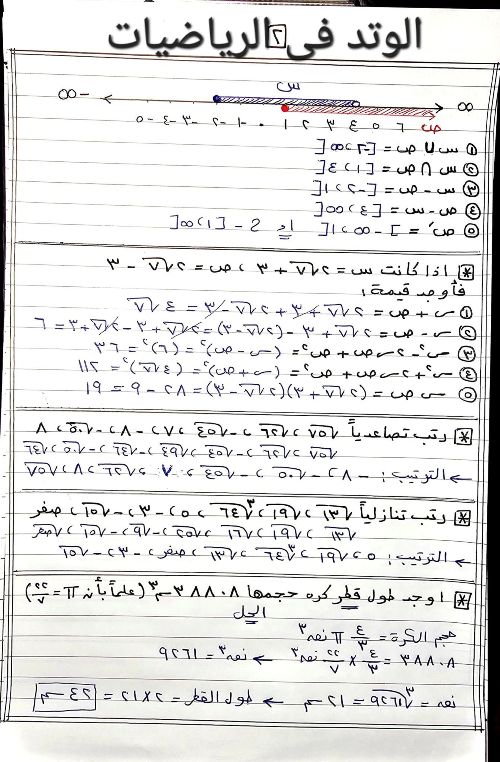 الوتد فى الرياضيات
٢
س
∞ -
∞
-٥ -٤ -٣ -٢ -١ ٠ ١ ٢ ٣ ٤ ٥ ٦ ص
① س ∪ ص = [-٢، ∞[
② س ∩ ص = [١، ٤[
③ س - ص = [-٢، ١[
④ ص - س = [٤، ∞[
⑤ صَ = ]-∞، ١[ أو ع - [١، ∞[
* اذا كانت س = ٢√٧ + ٣ ، ص = ٢√٧ - ٣
فأوجد قيمة:
① س + ص = ٢√٧ + ٣ + ٢√٧ - ٣ = ٤√٧
② س - ص = ٢√٧ + ٣ - (٢√٧ - ٣) = ٢√٧ + ٣ - ٢√٧ + ٣ = ٦
③ س² - ٢س ص + ص² = (س - ص)² = (٦)² = ٣٦
④ س² + ٢س ص + ص² = (س + ص)² = (٤√٧)² = ١١٢
⑤ س ص = (٢√٧ + ٣)(٢√٧ - ٣) = ٢٨ - ٩ = ١٩
* رتب تصاعدياً √٧٥ ، √٦٢ ، -√٤٥ ، ٧ ، -٨ ، -√٥٠ ، ٨
√٧٥ ، √٦٢ ، -√٤٥ ، √٤٩ ، -√٦٤ ، -√٥٠ ، √٦٤
← الترتيب: -٨ ، -√٥٠ ، -√٤٥ ، ٧ ، √٦٢ ، ٨ ، √٧٥
* رتب تنازلياً √١٣ ، √١٩ ، ∛٦٤ ، ٥ ، -٣ ، -√١٥ ، صفر
√١٣ ، √١٩ ، √١٦ ، √٢٥ ، -√٩ ، -√١٥ ، صفر
← الترتيب: ٥ ، √١٩ ، ∛٦٤ ، √١٣ ، صفر ، -٣ ، -√١٥
* اوجد طول قطر كره حجمها ٣٨٨٠٨ سم³ (علماً بأن π = ٢٢/٧)
الحل
حجم الكرة = ٤/٣ π نق³
٣٨٨٠٨ = ٤/٣ × ٢٢/٧ نق³ ← نق³ = ٩٢٦١
نق = ∛٩٢٦١ = ٢١ سم ← طول القطر = ٢ × ٢١ = ٤٢ سم